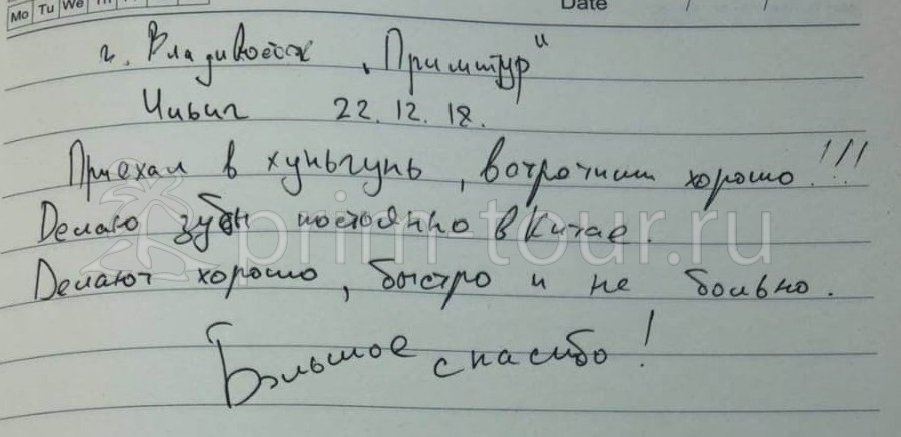 Mo Tu We
Date / /
г. Владивосток „Примтур"
22.12.18.
Приехал в хуньчунь, встретили хорошо!!!
Делаю зубы постоянно в Китае.
Делают хорошо, быстро и не больно.
Большое спасибо!
prim-tour.ru